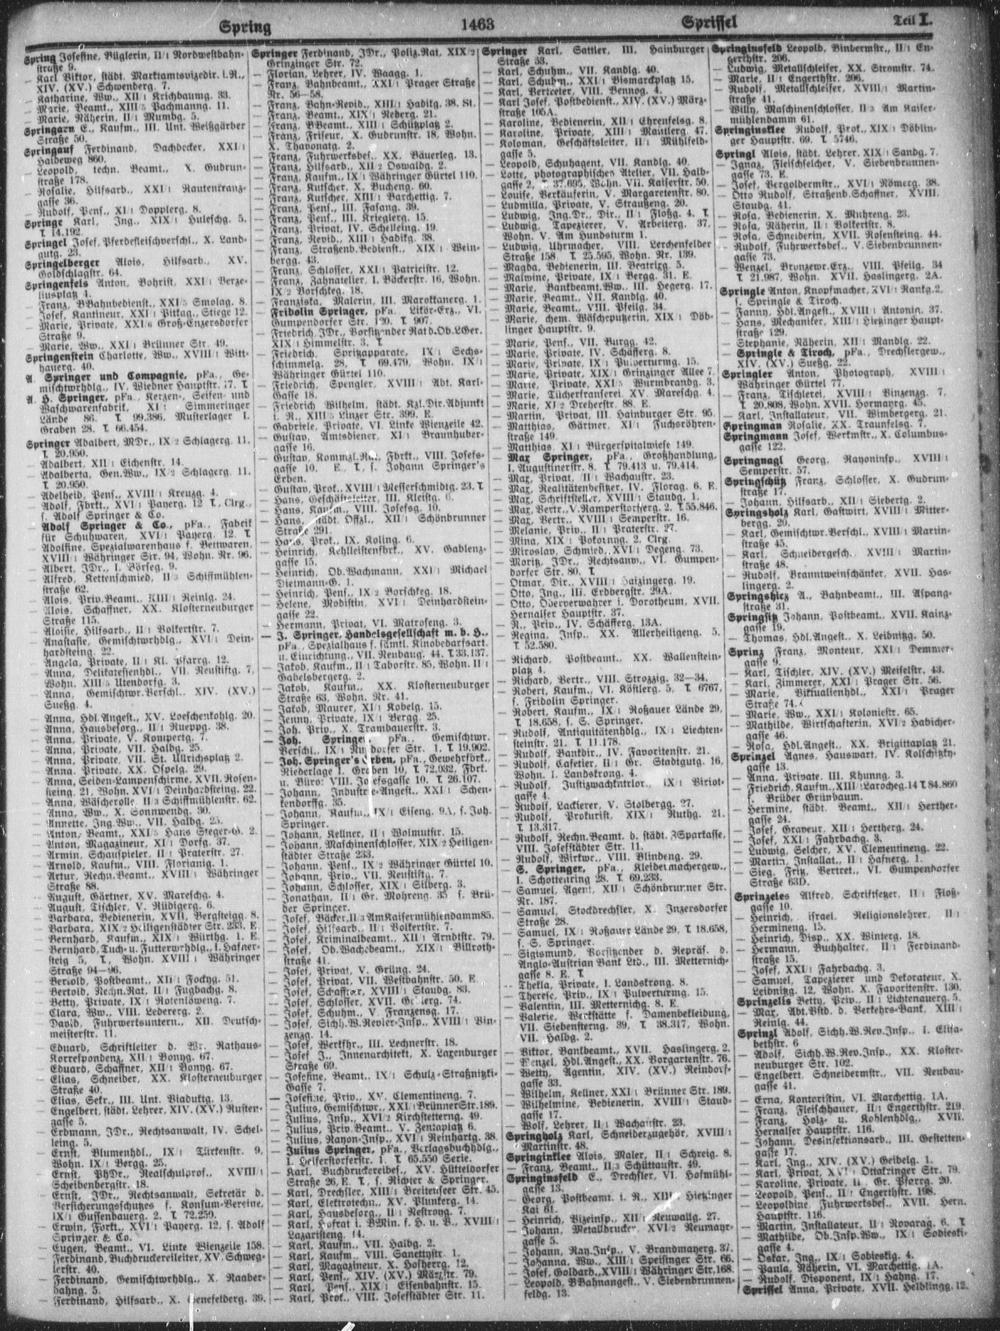 Spring 1463 Spriffel Teil I.
Spring Josefine, Büglerin, II/1 Nordwestbahn-
straße 9.
— Karl Viktor, städt. Marktamtsvizedir. i. R.,
XIV. (XV.) Schwenderg. 7.
— Katharine, Ww., XII/1 Krichbaumg. 33.
— Marie, Beamt., XIII/5 Zachmanng. 11.
— Marie, Näherin, II/1 Mumbg. 5.
Springarn E., Kaufm., III. Unt. Weißgärber
Straße 50.
Springauf Ferdinand, Dachdecker, XXI/1
Haideweg 860.
— Leopold, techn. Beamt., X. Gudrun-
straße 178.
— Rosalie, Hilfsarb., XXI/1 Rautenkranz-
gasse 36.
— Rudolf, Pens., XI/1 Dopplerg. 8.
Springe Karl, Ing., XIX/1 Huleschg. 5.
T. 14.192.
Springel Josef, Pferdefleischverschl., X. Land-
gutg. 23.
Springelberger Alois, Hilfsarb., XV.
Goldschlagstr. 64.
Springenfels Anton, Bohrist, XXI/1 Berze-
liusplatz 4.
— Franz, BBahnbedienst., XXI/5 Smolag. 8.
— Josef, Kantineur, XXI/1 Pitkag., Stiege 12.
— Marie, Private, XXI/6 Groß-Enzersdorfer
Straße 9.
— Marie, Ww., XXI/1 Brünner Str. 49.
Springenstein Charlotte, Ww., XVIII/1 Witt-
hauerg. 40.
A. Springer und Compagnie, pFa., Ge-
mischtwrhdlg., IV. Wiedner Hauptstr. 17. T.
A. H. Springer, pFa., Kerzen-, Seifen- und
Waschwarenfabrik, XI/1 Simmeringer
Lände 86. T. 99.386, Musterlager I.
Graben 28. T. 66.454.
Springer Adalbert, MDr., IX/2 Schlagerg. 11.
T. 20.950.
— Adalbert, XII/1 Eichenstr. 14.
— Adalberta, Gen.Ww., IX/2 Schlagerg. 11.
T. 20.950.
— Adelheid, Pens., XVIII/1 Kreuzg. 4.
— Adolf, Fbrkt., XVI/1 Payerg. 12. T., Clrg.,
s. Adolf Springer & Co.
Adolf Springer & Co., pFa., Fabrik
für Schuhwaren, XVI/1 Payerg. 12. T.
— Adolfine, Spezialwarenhaus f. Bettwaren,
XVIII/1 Währinger Str. 94, Wohn. Nr. 96.
— Albert, JDr., I. Börseg. 9.
— Alfred, Kettenschmied, II/3 Schiffmühlen-
straße 62.
— Alois, Priv.Beamt., XIII/1 Reinlg. 24.
— Alois, Schaffner, XX. Klosterneuburger
Straße 115.
— Aloisie, Hilfsarb., II/1 Volkertstr. 7.
— Anastasie, Gemischtwrhdlg., XVI/1 Dein-
hardsteing. 22.
— Angela, Private, II/1 Kl. Pfarrg. 12.
— Anna, Delikatessenhdl., VII. Neustiftg. 7,
Wohn. XIII/5 Utendorfg. 3.
— Anna, Gemischtwr.Verschl., XIV. (XV.)
Sueßg. 4.
— Anna, Hdl.Angest., XV. Loeschenkohlg. 20.
— Anna, Hausbesorg., II/1 Rueppg. 38.
— Anna, Private, V. Kompertg. 7.
— Anna, Private, VII. Halbg. 25.
— Anna, Private, VII. St. Ulrichsplatz 2.
— Anna, Private, XX. Ospelg. 29.
— Anna, Seiden-Lampenschirme, XVII. Rosen-
steing. 21, Wohn. XVI/1 Deinhardsteing. 22.
— Anna, Wäscherolle, II/3 Schiffmühlenstr. 62.
— Anna, Ww., X. Sonnwendg. 30.
— Annette, Ing.Ww., VII. Halbg. 25.
— Anton, Beamt., XXI/5 Hans Steger-G. 2.
— Anton, Magazineur, XI/1 Dorfg. 37.
— Armin, Schauspieler, II/1 Praterstr. 27.
— Arnold, Kaufm., VIII. Florianig. 1.
— Artur, Rechn.Beamt., XVIII/1 Währinger
Straße 88.
— August, Gärtner, XV. Mareschg. 4.
— August, Tischler, V. Rüdigerg. 6.
— Barbara, Bedienerin, XVII. Bergsteigg. 8.
— Barbara, XIX/2 Heiligenstädter Str. 233, E.
— Bernhard, Kaufm., XIX/1 Würthg. 1, E.
— Bernhard, Tuch- u. Futterwrhdlg., I. Hafner-
steig 5, T., Wohn. XVIII/1 Währinger
Straße 94—96.
— Bertold, Postbeamt., XII/1 Fockyg. 51.
— Bertold, Rechn.Rat, II/1 Fugbachg. 8.
— Betty, Private, IX/1 Rotenlöweng. 7.
— Clara, Ww., VIII. Ledererg. 2.
— David, Fuhrwerksuntern., XII. Deutsch-
meisterstr. 11.
— Eduard, Schriftleiter d. Wr. Rathaus-
Korrespondenz, XII/1 Bonyg. 67.
— Eduard, Schaffner, XII/1 Bonyg. 67.
— Elias, Schneider, XX. Klosterneuburger
Straße 40.
— Elias, Sekr., III. Unt. Viaduktg. 13.
— Engelbert, städt. Lehrer, XIV. (XV.) Rusten-
gasse 5.
— Erdmann, JDr., Rechtsanwalt, IV. Schel-
leing. 5.
— Ernst, Blumenhdl., IX/1 Türkenstr. 9,
Wohn. IX/1 Bergg. 25.
— Ernst, PhDr., Realschulprof., XVIII/1
Scheibenbergstr. 18.
— Ernst, JDr., Rechtsanwalt, Sekretär d.
Versicherungsschutzes f. Konsum-Vereine,
IX/1 Gussenbauerg. 2. T. 72.259.
— Erwin, Fbrkt., XVI/1 Payerg. 12, s. Adolf
Springer & Co.
— Eugen, Beamt., VI. Linke Wienzeile 158.
— Ferdinand, Buchdruckereileiter, XV. Schweg-
lerstr. 40.
— Ferdinand, Gemischtwrhdlg., X. Raaber-
bahng. 5.
— Ferdinand, Hilfsarb., X. Senefelderg. 39.
Springer Ferdinand, JDr., Poliz.Rat, XIX/2
Grinzinger Str. 72.
— Florian, Lehrer, IV. Waagg. 1.
— Franz, Bahnbeamt., XXI/1 Prager Straße
Nr. 56—58.
— Franz, Bahn-Revid., XIII/1 Hadikg. 38, St.
— Franz, Beamt., XIX/1 Neberg. 21.
— Franz, B Beamt., XIII/1 Schützplatz 2.
— Franz, Friseur, X. Gudrunstr. 18, Wohn.
X. Thavonatg. 2.
— Franz, Fuhrwerksbes., XX. Bäuerleg. 13.
— Franz, Hilfsarb., XII/2 Oswaldg. 2.
— Franz, Kaufm., IX/1 Währinger Gürtel 110.
— Franz, Kutscher, X. Bucheng. 60.
— Franz, Kutscher, XIII/1 Karchettig. 7.
— Franz, Pens., III. Fasang. 39.
— Franz, Pens., III. Krieglerg. 15.
— Franz, Privat, IV. Schelleing. 19.
— Franz, Revid., XIII/1 Hadikg. 38.
— Franz, Straßenb.Bedienst., XIX/1 Wein-
bergg. 43.
— Franz, Schlosser, XXI/1 Patrizistr. 12.
— Franz, Zahnatelier, I. Böckerstr. 16, Wohn.
IX/2 Borschkeg. 18.
— Franziska, Malerin, III. Marokkanerg. 1.
Fridolin Springer, pFa., Likör-Erz., VI.
Gumpendorfer Str. 120. T. 907.
— Friedrich, JDr., Vorsitzender Rat d. Ob.LGer.
XIX/1 Himmelstr. 3. T.
— Friedrich, Spritzapparate, IX/1 Sechs-
schimmelg. 28, T. 69.479, Wohn. IX/1
Währinger Gürtel 110.
— Friedrich, Spengler, XVIII/1 Abt. Karl-
Gasse 18.
— Friedrich Wilhelm, städt. Kzl.Dir.Adjunkt
i. R., XIII/5 Linzer Str. 399, E.
— Gabriele, Private, VI. Linke Wienzeile 42.
— Gustav, Amtsdiener, XI/1 Braunhuber-
gasse 16.
— Gustav, Kommzl.Rat, Fbrkt., VIII. Josefs-
gasse 10. E., T., s. Johann Springer's
Erben.
— Gustav, Prof., XVIII/1 Messerschmidtg. 23. T.
— Hans, Geschäftsleiter, III. Kleistg. 6.
— Hans, Kaufm., VIII. Josefsg. 10.
— Hans, städt. Offzl., XII/1 Schönbrunner
Straße 291.
— Hans, Prof., IX. Koling. 6.
— Heinrich, Kehlleistenfbrk., XV. Gablenz-
gasse 15.
— Heinrich, Ob.Wachmann, XXI/1 Michael
Dietmann-G. 1.
— Heinrich, Pens., IX/2 Borschkeg. 18.
— Helene, Modistin, XVI/1 Deinhardstein-
gasse 22.
— Hermann, Privat, VI. Matroseng. 3.
J. Springer, Handelsgesellschaft m. b. H.,
pFa., Spezialhaus f. sämtl. Kinobedarfsart.
u. Einrichtung, VII. Neubaug. 44, T. 33.137.
— Jakob, Kaufm., II/1 Taborstr. 85, Wohn. II/1
Gabelsbergerg. 2.
— Jakob, Kaufm., XX. Klosterneuburger
Straße 63, Wohn. Nr. 41.
— Jakob, Maurer, XI/1 Kobelg. 15.
— Jenny, Private, IX/1 Bergg. 25.
— Joh., Priv., X. Trambauerstr. 3.
Joh. Springer, pFa., Gemischtwr.
Verschl., IX/1 Nußdorfer Str. 1, T. 19.902.
Joh. Springer's Erben, pFa., Gewehrfbrk.,
Niederlage I. Graben 10, T. 72.082, Fbrk.
u. Büro: VIII. Josefsgasse 10. T. 26.107.
— Johann, Industrie-Angest., XXI/1 Schen-
kendorffg. 35.
— Johann, Kaufm., IX/1 Eiseng. 9A, s. Joh.
Springer.
— Johann, Kellner, II/1 Wolmutstr. 15.
— Johann, Maschinenschlosser, XIX/2 Heiligen-
städter Straße 233.
— Johann, Pens., IX/2 Währinger Gürtel 10.
— Johann, Priv., VII. Neustiftg. 7.
— Johann, Schlosser, XIX/1 Silberg. 3.
— Jonathan, II/1 Gr. Mohreng. 35, s. Brü-
der Springer.
— Josef, Bäcker, II/3 Am Kaisermühlendamm 85.
— Josef, Hilfsarb., II/1 Volkertstr. 7.
— Josef, Kriminalbeamt., XII/1 Arndtstr. 79.
— Josef, Ob.Wachebeamt., XIX/1 Billroth-
straße 41.
— Josef, Privat, V. Grüng. 24.
— Josef, Privat, VII. Westbahnstr. 50. E.
— Josef, Schaffner, XVIII/1 Staudg. 83.
— Josef, Schlosser, XVII. Geblerg. 74.
— Josef, Schuhm., V. Franzensg. 17.
— Josef, Sichh.W.Revier-Insp., XVIII/1 Vin-
zenzg. 14.
— Josef, Werkfhr., III. Lechnerstr. 18.
— Josef J., Innenarchitekt, X. Laxenburger
Straße 69.
— Josefine, Beamt., IX/1 Schulz-Straßnitzki-
Gasse 7.
— Josefine, Priv., XV. Clementineng. 7.
— Julius, Gemischtwr., XXI/1 Brünner Str. 189.
— Julius, Insp., XVI/1 Kirchstetterng. 49.
— Julius, Priv.Beamt., V. Zentaplatz 6.
— Julius, Rayon-Insp., XVI/1 Reinhartg. 38.
Julius Springer, pFa., Verlagsbuchhdlg.,
I. Helferstorferstr. 1. T. 65.550 Serie.
— Karl, Buchdruckereibes., XV. Hütteldorfer
Straße 26, E., T., s. Richter & Springer.
— Karl, Drechsler, XIII/1 Breitenseer Str. 45.
— Karl, Elektrotechn., XV. Plunkerg. 14.
— Karl, Hausbesorg., II/1 Nestroyg. 7.
— Karl, Hofrat i. BMin. f. H. u. V., XVIII/1
Lazaristeng. 14.
— Karl, Kaufm., VII. Halbg. 2.
— Karl, Kaufm., VIII. Sanettystr. 1.
— Karl, Magazineur, X. Hofherrg. 12.
— Karl, Pens., XIV. (XV.) Märzstr. 79.
— Karl, Pens., XIX/1 Eisenbahnstr. 15.
— Karl, Prof., VIII. Josefstädter Str. 11.
Springer Karl, Sattler, III. Hainburger
Straße 53.
— Karl, Schuhm., VII. Kandlg. 40.
— Karl, Schuhm., XXI/1 Bismarckplatz 15.
— Karl, Vertreter, VIII. Bennog. 4.
— Karl Josef, Postbedienst., XIV. (XV.) März-
straße 105A.
— Karoline, Bedienerin, XII/1 Ehrenfelsg. 8.
— Karoline, Private, XIII/1 Mantlerg. 47.
— Koloman, Geschäftsleiter, II/1 Mühlfeld-
gasse 5.
— Leopold, Schuhagent, VII. Kandlg. 40.
— Lotte, photographisches Atelier, VII. Halb-
gasse 2, T. 37.695, Wohn. VII. Kaiserstr. 50.
— Louise, Verkäuferin, V. Margaretenstr. 80.
— Ludmilla, Private, V. Straußeng. 20.
— Ludwig, Ing.Dr., Dir., II/1 Floßg. 4. T.
— Ludwig, Tapezierer, V. Arbeiterg. 37,
Wohn. V. Am Hundsturm 1.
— Ludwig, Uhrmacher, VIII. Lerchenfelder
Straße 158, T. 25.595, Wohn. Nr. 139.
— Magda, Bedienerin, III. Beatrixg. 5.
— Malwine, Private, IX/1 Bergg. 31, E.
— Marie, Bankbeamt.Ww., III. Hegerg. 17.
— Marie, Beamt., VII. Kandlg. 40.
— Marie, Beamt., VIII. Pfeilg. 34.
— Marie, chem. Wäscheputzerin, XIX/1 Döb-
linger Hauptstr. 9.
— Marie, Pens., VII. Burgg. 42.
— Marie, Private, IV. Schäfferg. 8.
— Marie, Private, IX/1 Pulverturmg. 15.
— Marie, Private, XIX/1 Grinzinger Allee 7.
— Marie, Private, XXI/5 Wurmbrandg. 3.
— Marie, Tücherfransrei, XV. Mareschg. 4.
— Marie, XI/2 Dreherstr. 88, E.
— Martin, Privat, III. Hainburger Str. 95.
— Matthias, Gärtner, XI/1 Fuchsröhren-
straße 149.
— Matthias, XI/1 Bürgerspitalwiese 149.
Max Springer, pFa., Großhandlung,
I. Augustinerstr. 8. T. 79.413 u. 79.414.
— Max, Privat, II/1 Wachaustr. 23.
— Max, Realitätenbesitzer, IV. Florag. 6. E.
— Max, Schriftsteller, XVIII/1 Staudg. 1.
— Max, Vertr., V. Ramperstorfferg. 2. T. 55.846.
— Max, Vertr., XVIII/1 Semperstr. 16.
— Melanie, Priv., II/1 Praterstr. 27.
— Mina, XIX/1 Pokornyg. 2. Clrg.
— Miroslav, Schmied, XVI/1 Degeng. 73.
— Moritz, JDr., Rechtsanw., VI. Gumpen-
dorfer Str. 80. T.
— Otmar, Dir., XVIII/1 Haizingerg. 19.
— Otto, Ing., III. Erdbergstr. 29A.
— Otto, Oberverwahrer i. Dorotheum, XVII.
Hernalser Hauptstr. 37.
— R., Priv., IV. Schäfferg. 13A.
— Regina, Insp., XX. Allerheiligeng. 5.
T. 52.580.
— Richard, Postbeamt., XX. Wallenstein-
platz 4.
— Richard, Vertr., VIII. Strozzig. 32—34.
— Robert, Kaufm., VI. Köstlerg. 5. T. 6767,
s. Fridolin Springer.
— Robert, Kaufm., IX/1 Roßauer Lände 29,
T. 18.658, s. S. Springer.
— Rudolf, Antiquitätenhdlg., IX/1 Liechten-
steinstr. 21. T. 11.178.
— Rudolf, Bankbr., IV. Favoritenstr. 21.
— Rudolf, Cafetier, II/1 Gr. Stadtgutg. 16,
Wohn. I. Landskrong. 4.
— Rudolf, Justizwachkntrlor., IX/1 Viriot-
gasse 4.
— Rudolf, Lackierer, V. Stolbergg. 27.
— Rudolf, Prokurist, XIX/1 Ruthg. 21.
T. 13.317.
— Rudolf, Rechn.Beamt. d. städt. JSparkasse,
VIII. Josefstädter Str. 11.
— Rudolf, Wirtwr., VIII. Blindeng. 29.
S. Springer, pFa., Kleidermachergew.,
I. Schottenring 28. T. 69.233.
— Samuel, Agent, XII/1 Schönbrunner Str.
Nr. 187.
— Samuel, Stockdrechsler, X. Inzersdorfer
Straße 28.
— Samuel, IX/1 Roßauer Lände 29, T. 18.658,
s. S. Springer.
— Sigismund, Vorsitzender d. Repräs. d.
Anglo-Austrian Bank Ltd., III. Metternich-
gasse 8. E., T.
— Thekla, Private, I. Landskrong. 8.
— Therese, Priv., IX/1 Pulverturmg. 15.
— Valentin, III. Metternichg. 8. E.
— Valerie, Werkstätte f. Damenbekleidung,
VII. Siebensterng. 39, T. 38.317, Wohn.
VII. Halbg. 2.
— Viktor, Bankbeamt., XVII. Haslingerg. 2.
— Wenzel, Hdl.Angest., XX. Vorgartenstr. 76.
— Betty, Agentin, XIV. (XV.) Reindorf-
gasse 33.
— Wilhelm, Kellner, XXI/1 Brünner Str. 189.
— Wilhelmine, Bedienerin, XVIII/1 Staud-
gasse 17.
— Wolf, Lehrer, II/1 Wachaustr. 23.
Springholz Karl, Schneiderzugehör, XVIII/1
Martinstr. 48.
Springinklee Alois, Maler, II/1 Schreig. 8.
— Franz, Beamt., II/3 Schüttaustr. 49.
Springinsfeld E., Drechsler, VI. Hofmühl-
gasse 13.
— Georg, Postbeamt. i. R., XIII/1 Hietzinger
Kai 61.
— Heinrich, Vizeinsp., XII/1 Neuwallg. 27.
— Johann, Metalldrucker, XVI/2 Neumayr-
gasse 5.
— Johann, Ray.Insp., V. Brandmayerg. 37.
— Johanna, Ww., XIII/1 Speisinger Str. 66.
— Josef, Goldarb., XVIII/1 Währinger Str. 168.
— Leopold, BBahnangest., V. Siebenbrunnen-
feldg. 13.
Springinsfeld Leopold, Bindermstr., II/1 En-
gerthstr. 206.
— Ludwig, Metallschleifer, XX. Stromstr. 74.
— Marie, II/1 Engerthstr. 206.
— Rudolf, Metallschleifer, XVIII/1 Martin-
straße 41.
— Willy, Maschinenschlosser, II/3 Am Kaiser-
mühlendamm 61.
Springinsklee Rudolf, Prof., XIX/1 Döblin-
ger Hauptstr. 69. T. 5746.
Springl Alois, städt. Lehrer, XIX/1 Sandg. 7.
— Ignaz, Fleischselcher, V. Siebenbrunnen-
gasse 73. E.
— Josef, Vergoldermstr., XVI/1 Römerg. 38.
— Otto Rudolf, Straßenb.Schaffner, XVIII.
Staudg. 41.
— Rosa, Bedienerin, X. Muhreng. 23.
— Rosa, Näherin, II/1 Volkertstr. 8.
— Rosa, Schneiderin, XVII. Rosensteing. 44.
— Rudolf, Fuhrwerksbes., V. Siebenbrunnen-
gasse 73.
— Wenzel, Bronzewr.Erz., VIII. Pfeilg. 34
T. 21.987, Wohn. XVII. Haslingerg. 2A.
Springle Anton, Knopfmacher, XVI/1 Rankg. 2,
s. Springle & Tiroch.
— Fanny, Hdl.Angest., XVIII/1 Antonig. 37.
— Hans, Mechaniker, XIII/1 Hietzinger Haupt-
straße 129.
— Stephanie, Näherin, XII/1 Mandlg. 22.
Springle & Tiroch, pFa., Drechslergew.,
XIV. (XV.) Sueßg. 22.
Springler Anton, Photograph, XVIII/1
Währinger Gürtel 77.
— Franz, Tischlerei, XVIII/1 Vinzenzg. 7,
T. 20.808, Wohn. XVII. Hormayrg. 45.
— Karl, Installateur, VII. Wimbergerg. 21.
Springman Rosalie, XX. Traunfelsg. 7.
Springmann Josef, Werkmstr., X. Columbus-
gasse 122.
Springnagl Georg, Rayoninsp., XVIII/1
Semperstr. 57.
Springschitz Franz, Schlosser, X. Gudrun-
straße 17.
— Johann, Hilfsarb., XII/1 Siebertg. 2.
Springsholz Karl, Gastwirt, XVIII/1 Mitter-
bergg. 20.
— Karl, Gemischtwr.Verschl., XVIII/1 Martin-
straße 45.
— Karl, Schneidergesch., XVIII/1 Martin-
straße 48.
— Rudolf, Branntweinschänker, XVII. Has-
lingerg. 2.
Springshitz A., Bahnbeamt., III. Aspang-
straße 31.
Springsitz Johann, Postbeamt., XVII. Kainz-
gasse 19.
— Thomas, Hdl.Angest., X. Leibnitzg. 50.
Sprinz Franz, Monteur, XXI/1 Demmer-
gasse 9.
— Karl, Tischler, XIV. (XV.) Meiselstr. 43.
— Karl, Zimmerer, XXI/1 Prager Str. 56.
— Marie, Viktualienhdl., XXI/1 Prager
Straße 74.
— Marie, Ww., XXI/1 Koloniestr. 65.
— Mathilde, Wirtschafterin, XVI/2 Habicher-
gasse 46.
— Rosa, Hdl.Angest., XX. Brigittaplatz 21.
Sprinzel Agnes, Hauswart, V. Kollschitzky-
gasse 13.
— Anna, Private, III. Khunng. 3.
— Friedrich, Kaufm., XIII/1 Larocheg. 14 T. 84.860
s. Brüder Grünbaum.
— Hermine, städt. Beamt., XII/1 Herther-
gasse 24.
— Josef, Graveur, XII/1 Hertherg. 24.
— Josef, XXI/1 Fahrbachg. 3.
— Ludwig, Selcher, XV. Clementineng. 22.
— Martin, Installat., II/1 Hafnerg. 1.
— Sieg. Fritz, Vertret., VI. Gumpendorfer
Straße 63D.
Sprinzeles Alfred, Schriftsetzer, II/1 Floß-
gasse 10.
— Heinrich, israel. Religionslehrer, II/1
Hermineng. 15.
— Heinrich, Disp., XX. Winterg. 18.
— Hermann, Buchhalter, II/1 Ferdinand-
straße 15.
— Josef, XXI/1 Fahrbachg. 3.
— Samuel, Tapezierer und Dekorateur, X.
Leibnitzg. 12, Wohn. X. Favoritenstr. 130.
Sprinzelis Betty, Priv., II/1 Lichtenauerg. 5.
— Max, Abt.Vstd. d. Verkehrs-Bank, XIII/1
Reinlg. 44.
Sprinzl Adolf, Sichh.W.Rev.Insp., I. Elisa-
bethstr. 6
— Adolf, Sichh.W.Insp., XX. Kloster-
neuburger Str. 102.
— Engelbert, Schneidermstr., VII. Neubau-
gasse 41.
— Erna, Kontoristin, VI. Marchettig. 1A.
— Franz, Fleischhauer, II/1 Engerthstr. 219.
— Franz, Holz- u. Kohlenhdlg., XVII.
Hernalser Hauptstr. 116.
— Johann, Desinfektionsarb., III. Gestetten-
gasse 17.
— Karl, Ing., XIV. (XV.) Geibelg. 1.
— Karl, Privat, XVI/1 Ottakringer Str. 79.
— Karoline, Private, II/1 Gr. Pfarrg. 20.
— Leopold, Pens., II/1 Engerthstr. 198.
— Leopoldine, Fuhrwerksbes., XVII. Hern.
Hauptstr. 116.
— Martin, Installateur, II/1 Novarag. 6. T.
— Mathilde, Ob.Insp.Ww., IX/1 Sobieski-
gasse 4.
— Oskar, Ing., IX/1 Sobieskig. 4.
— Paula, Näherin, VI. Marchettig. 1A.
— Rudolf, Disponent, IX/1 Hahng. 17.
Spriffel Anna, Private, XVII. Heldlingg. 12.